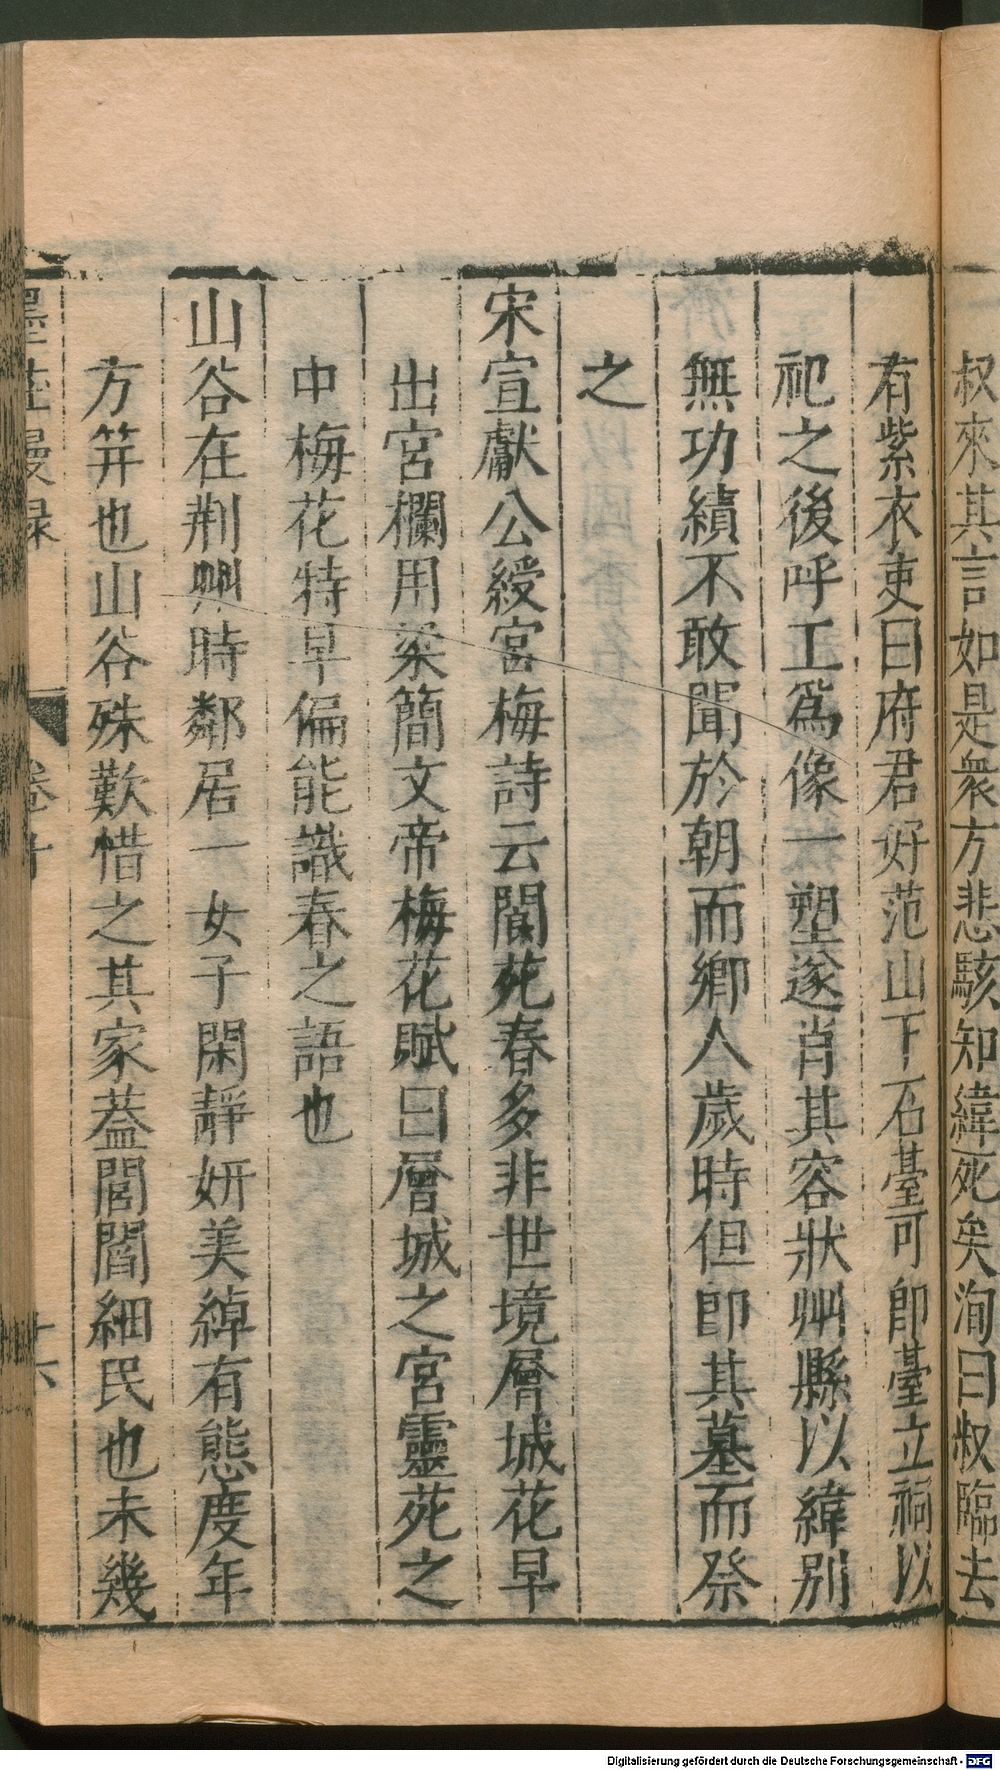 叔來其言如是衆方悲駭知緯死矣洵曰叔臨去
有紫衣吏曰府君好范山下石臺可卽臺立祠以
祀之後呼工爲像一塑遂肖其容狀州縣以緯別
無功績不敢聞於朝而鄉人歲時但卽其墓而祭
之
宋宣獻公綬宮梅詩云閬苑春多非世境層城花早
出宮欄用梁簡文帝梅花賦曰層城之宮靈苑之
中梅花特早偏能識春之語也
山谷在荆州時鄰居一女子閑靜妍美綽有態度年
方筓也山谷殊歎惜之其家蓋閭閻細民也未幾
墨莊漫録 卷十 十六
Digitalisierung gefördert durch die Deutsche Forschungsgemeinschaft - DFG